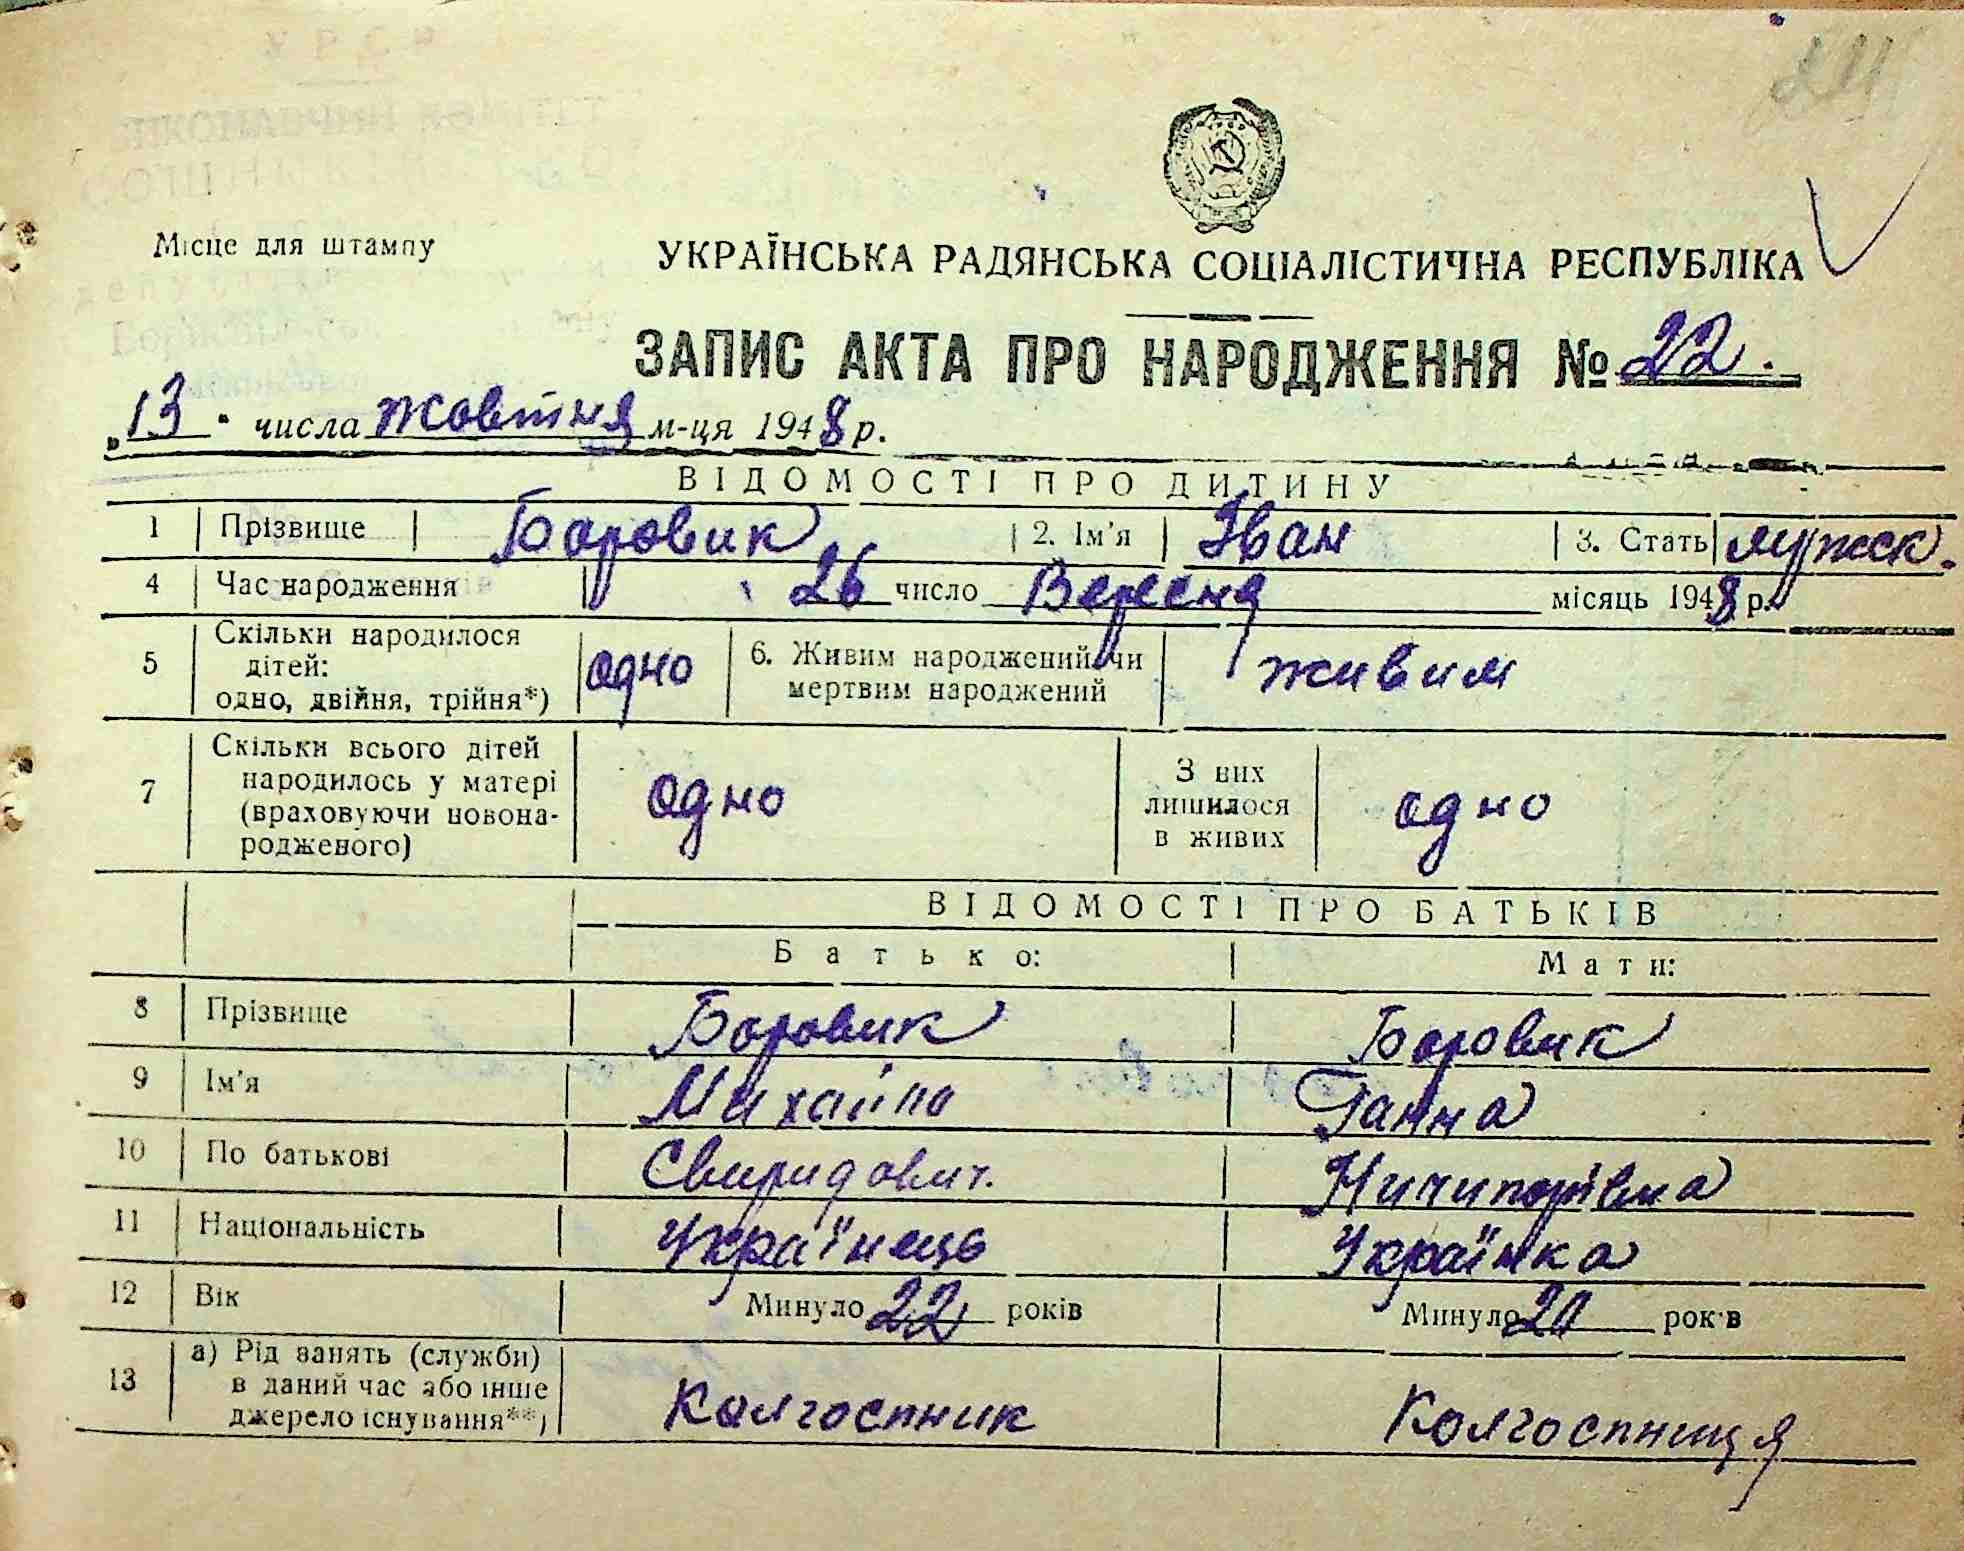 Місце для штампу
УКРАЇНСЬКА РАДЯНСЬКА СОЦІАЛІСТИЧНА РЕСПУБЛІКА
ЗАПИС АКТА ПРО НАРОДЖЕННЯ № 22.
„13" числа жовтня м-ця 1948 р.
ВІДОМОСТІ ПРО ДИТИНУ
1 Прізвище Боровик 2. Ім'я Іван 3. Стать мужск.
4 Час народження 26 число Вересня місяць 1948 р.
5 Скільки народилося дітей: одно, двійня, трійня*) одно 6. Живим народжений чи мертвим народжений живим
7 Скільки всього дітей народилось у матері (враховуючи новонародженого) одно З них лишилося в живих одно
ВІДОМОСТІ ПРО БАТЬКІВ
Батько: Мати:
8 Прізвище Боровик Боровик
9 Ім'я Михайло Ганна
10 По батькові Свиридович. Ничипорівна
11 Національність Українець Українка
12 Вік Минуло 22 років Минуло років
13 а) Рід занять (служби) в даний час або інше джерело існування**) Колгоспник Колгоспниця